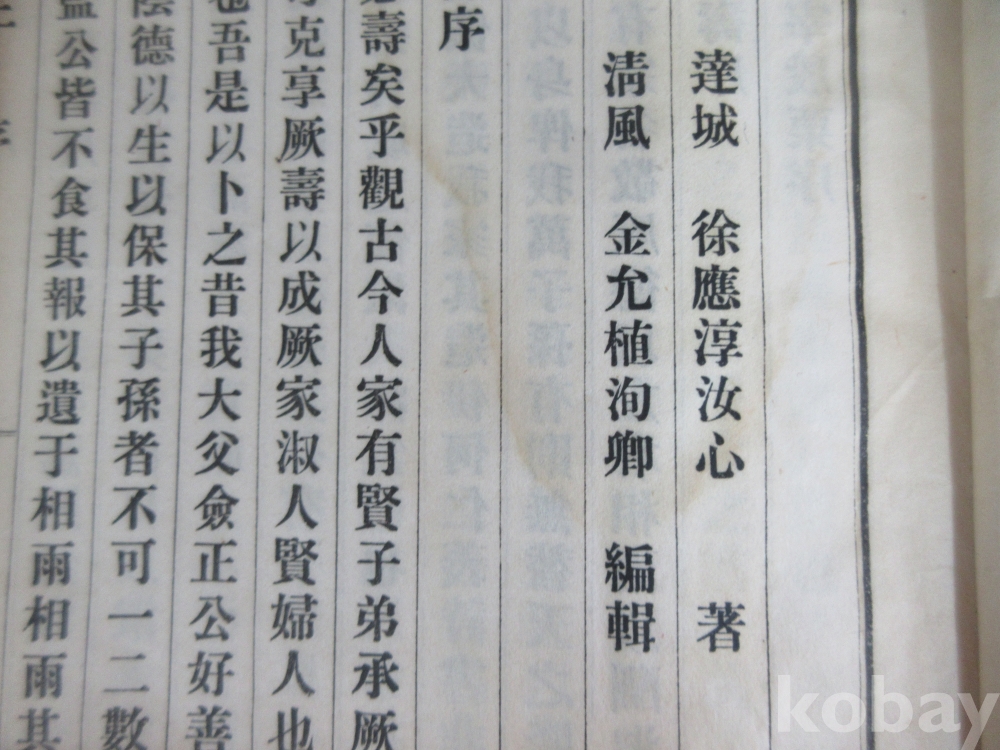 達城 徐應淳汝心 著
淸風 金允植洵卿 編輯
序
壽矣乎觀古今人家有賢子弟承厥
克享厥壽以成厥家淑人賢婦人也
吾是以卜之昔我大父僉正公好善
陰德以生以保其子孫者不可一二數
公皆不食其報以遺于相雨相雨其
kobay